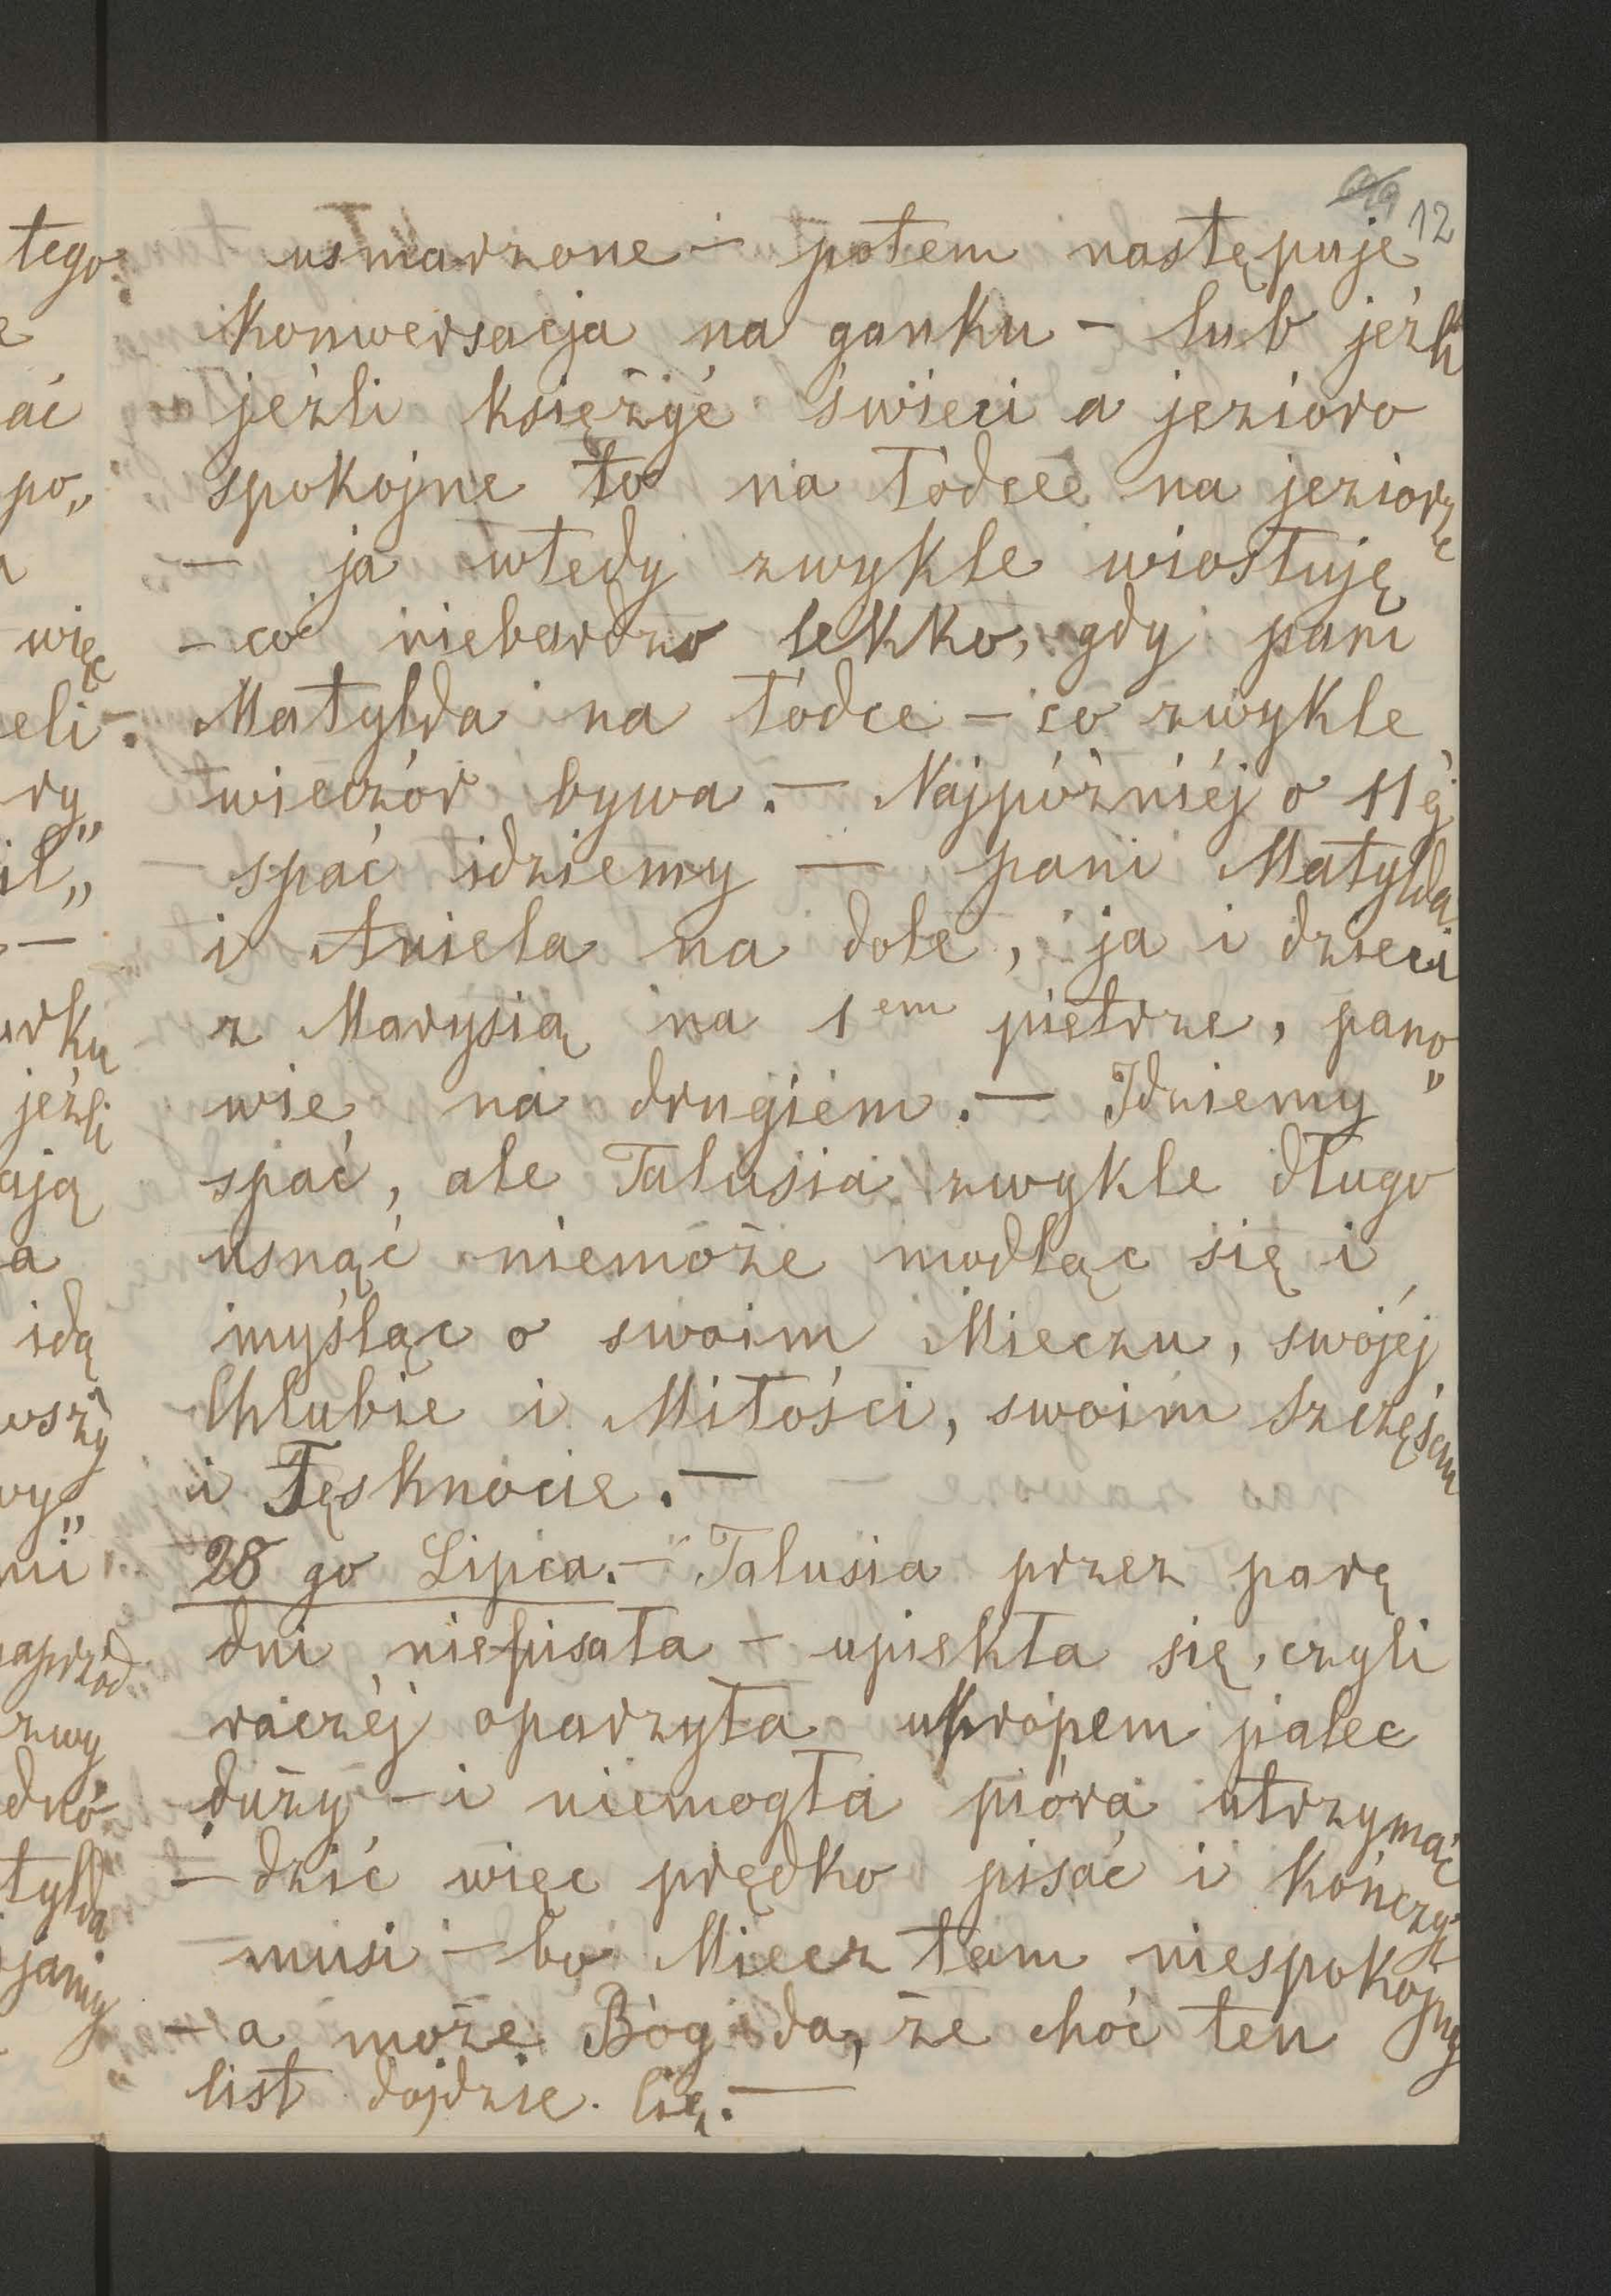 12
usmarzone – potem następuje
konwersacja na ganku – lub jeźli
jeźli księżyć świeci a jezioro
spokojne to na łódce na jeziorze
– ja wtedy zwykle wiosłuję
– co niebardzo lekko, gdy pani
Matylda na łódce – co zwykle
wieczór bywa. – Najpóźniéj o 11éj
– spać idziemy – pani Matylda
i Aniela na dole, ja i dzieci
z Marysią na 1em piętrze, pano„
wie na drugiem. – Idziemy
spać, ale Talusia zwykle długo
usnąć niemoże modląc się i
myśląc o swoim Mieczu, swojéj
Chlubie i Miłości, swoim Szczęściu
i Tęsknocie. –
28 go Lipca. – Talusia przez parę
dni niepisała – upiekła się, czyli
raczéj oparzyła ukropem palec
duży – i niemogła pióra utrzymać
– dziś więc prędko pisać i kończyć
musi – bo Miecz tam niespokojny
– a może Bóg da, że choć ten
list dojdzie Cię. –
tego
ać
po„
więc
eli –
ry„
il„
–
urku
jeźli
ają
a
idą
wszy
wy„
ni
naprzód
zwy
dnó
tylda
jamy